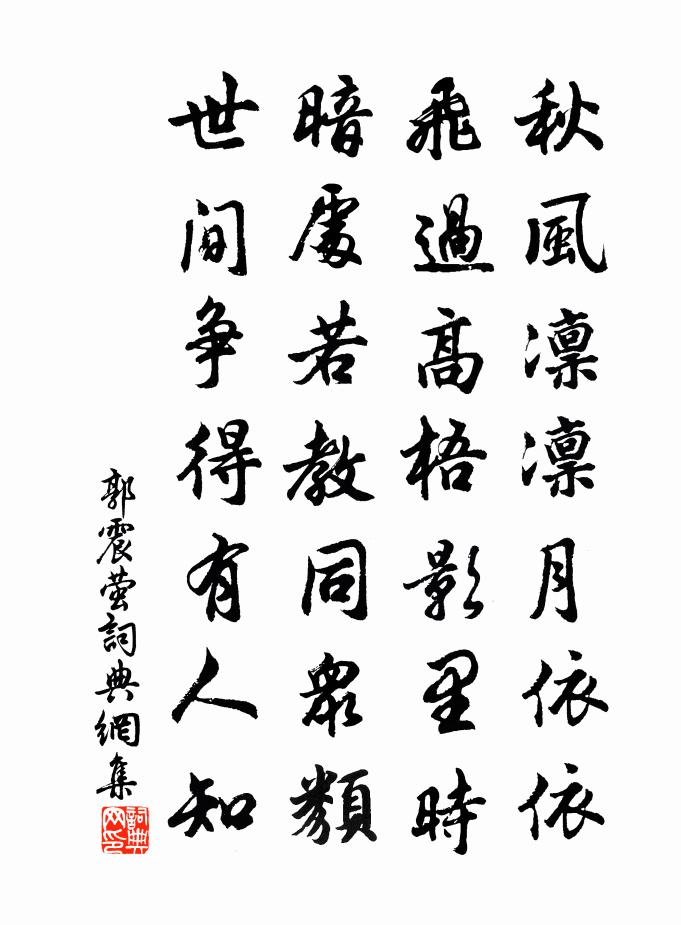 秋風凛凛月依依
飛過高梧影里時
暗處若教同衆類
世間争得有人知
郭震螢詞典網集
詞典網印